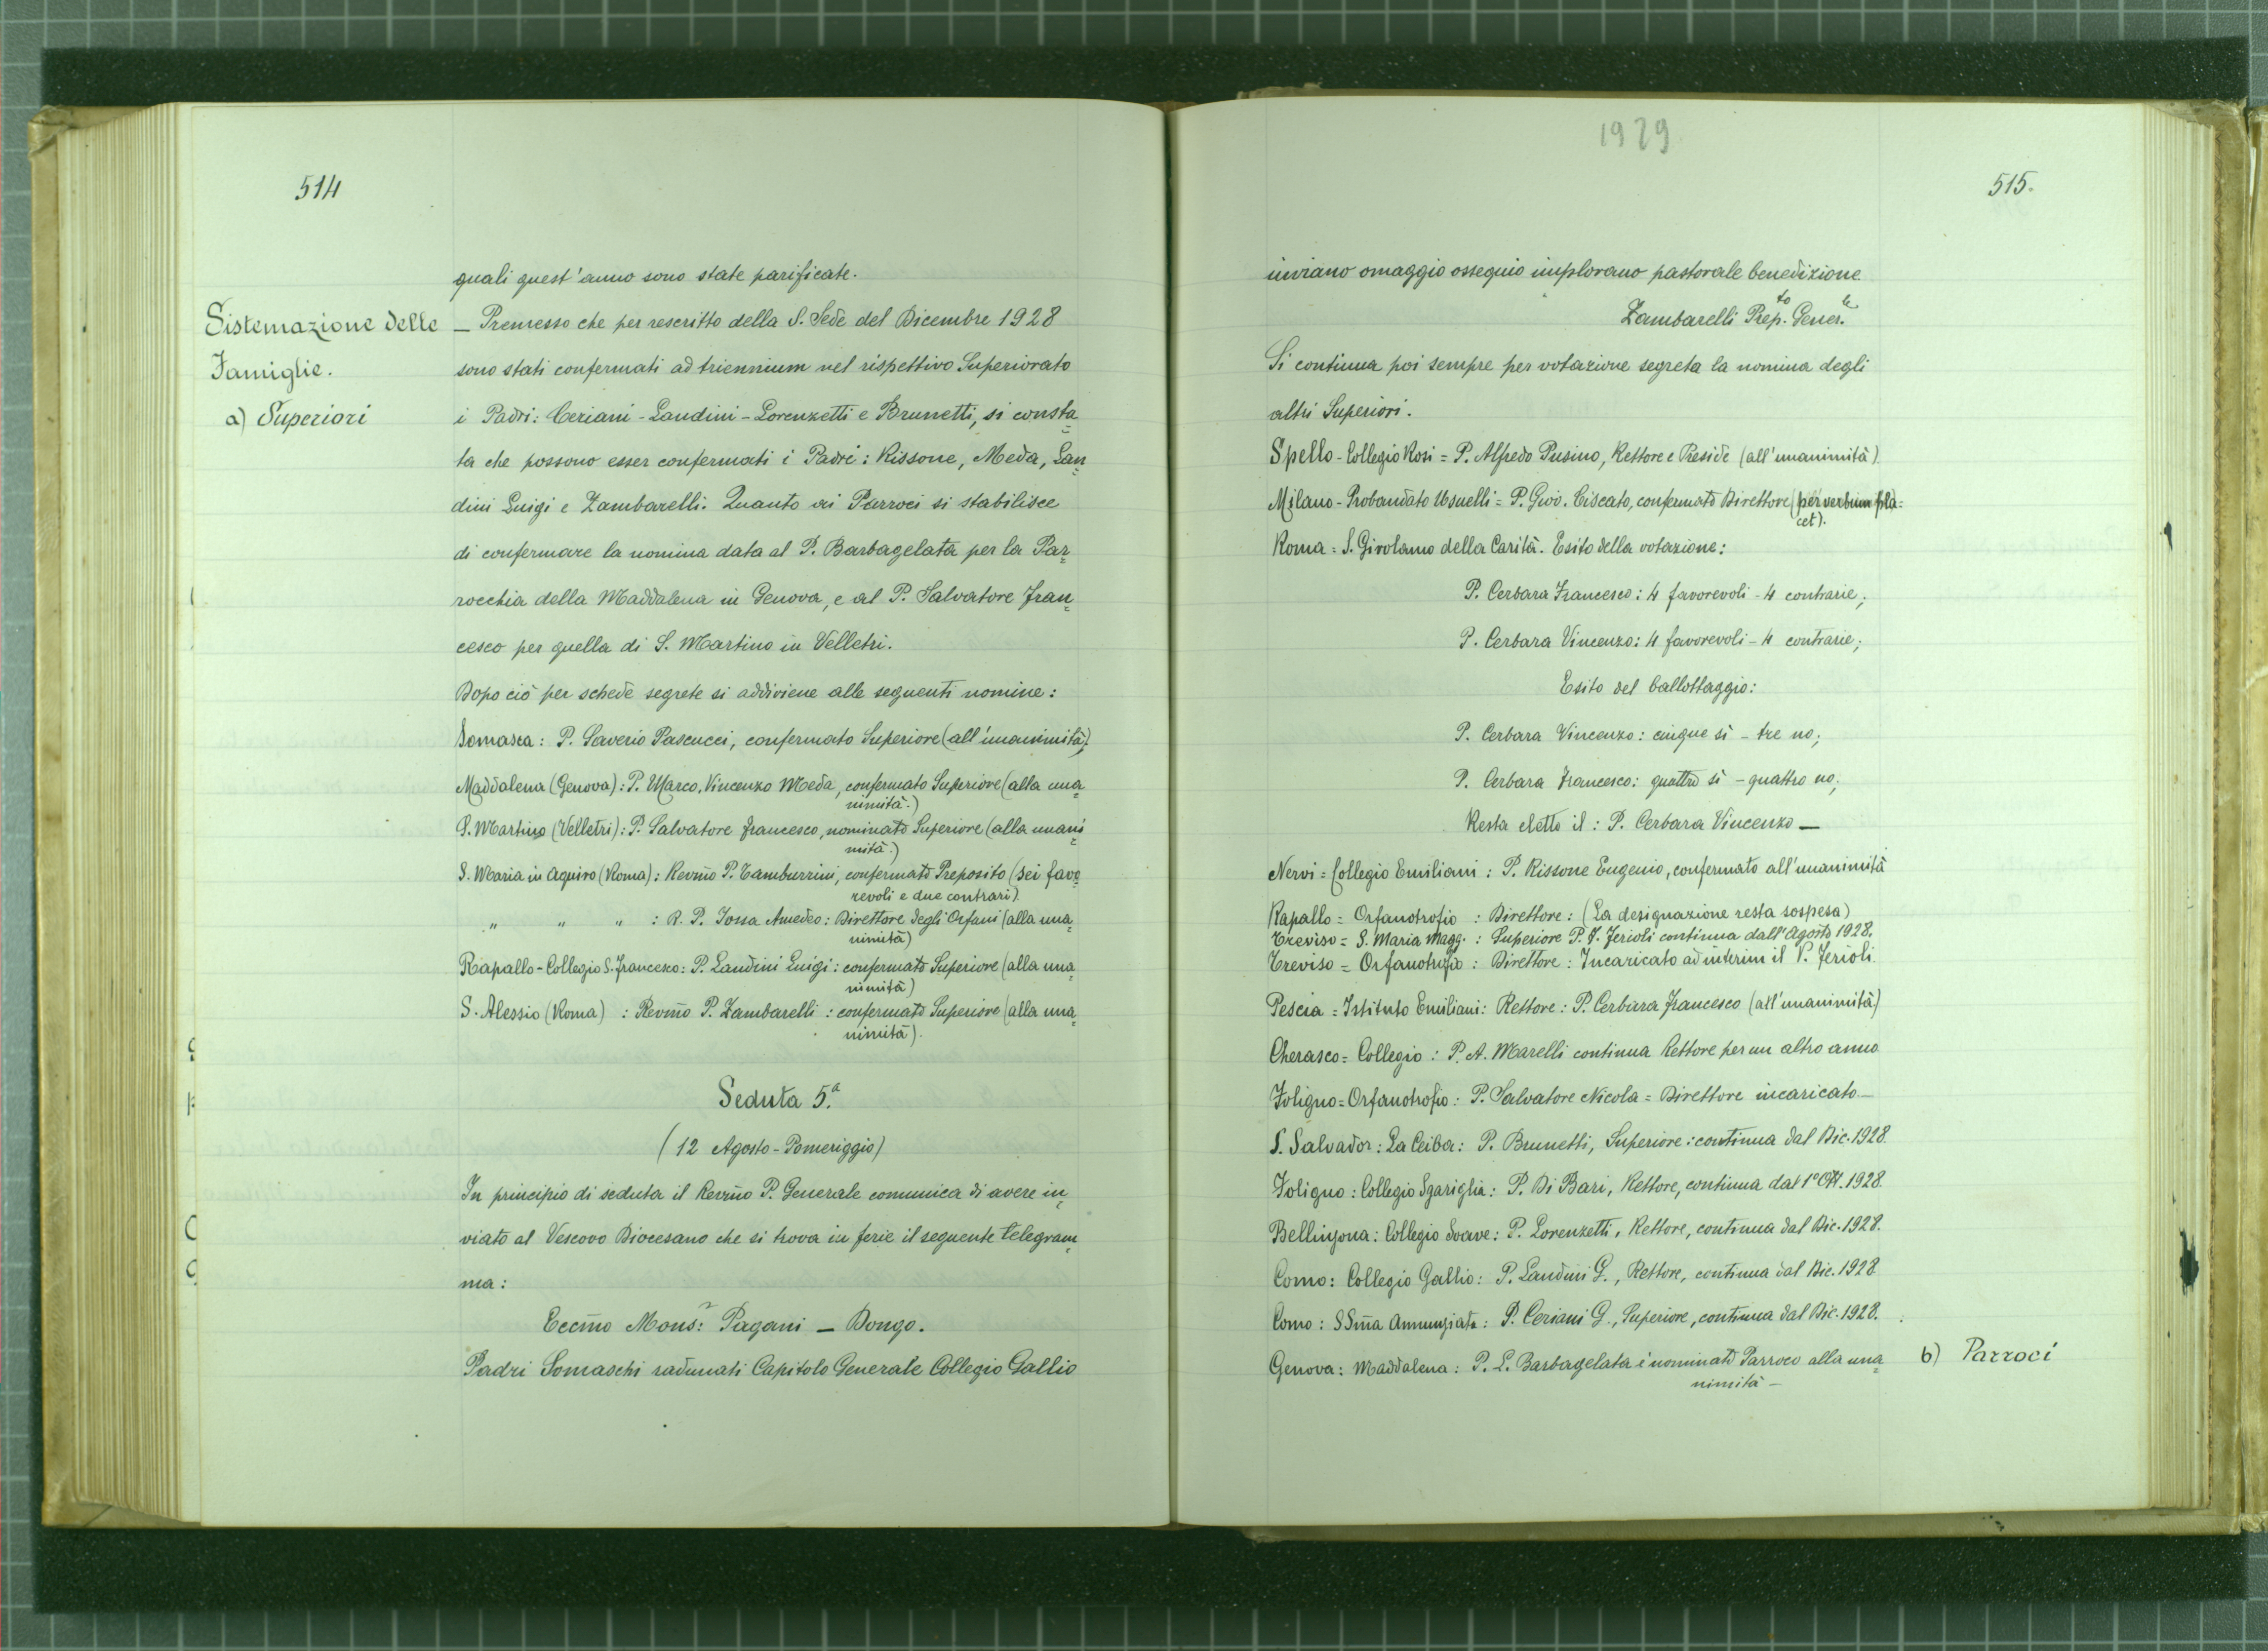 514
quali quest'anno sono state parificate.
Sistemazione delle
Famiglie.
a) Superiori
— Premesso che per rescritto della S. Sede del Dicembre 1928
sono stati confermati ad triennium nel rispettivo Superiorato
i Padri: Ceriani - Landini - Lorenzetti e Brunetti, si consta=
ta che possono esser confermati i Padri: Rissone, Meda, Lan=
dini Luigi e Zambarelli. Quanto ai Parroci si stabilisce
di confermare la nomina data al P. Barbagelata per la Par=
rocchia della Maddalena in Genova, e al P. Salvatore Fran=
cesco per quella di S. Martino in Velletri.
Dopo ciò per schede segrete si addiviene alle seguenti nomine:
Somasca: P. Saverio Pascucci, confermato Superiore (all'unanimità).
Maddalena (Genova): P. Marco, Vincenzo Meda, confermato Superiore (alla una=
nimità.)
S. Martino (Velletri): P. Salvatore Francesco, nominato Superiore (alla unani=
mità.)
S. Maria in Aquiro (Roma): Revm̃o P. Tamburrini, confermato Preposito (sei favo=
revoli e due contrari).
" " " : R. P. Jossa Amedeo: Direttore degli Orfani (alla una=
nimità)
Rapallo - Collegio S. Francesco: P. Landini Luigi: confermato Superiore (alla una=
nimità)
S. Alessio (Roma) : Revm̃o P. Zambarelli : confermato Superiore (alla una=
nimità).
Seduta 5.ª
(12 Agosto - Pomeriggio)
In principio di seduta il Revm̃o P. Generale comunica di avere in=
viato al Vescovo Diocesano che si trova in ferie il seguente telegram=
ma:
Eccm̃o Mons.r Pagani — Dongo.
Padri Somaschi radunati Capitolo Generale Collegio Gallio
1929
515.
inviano omaggio ossequio implorano pastorale benedizione
Zambarelli Prep.to Gener.le
Si continua poi sempre per votazione segreta la nomina degli
altri Superiori.
Spello - Collegio Rosi = P. Alfredo Pusino, Rettore e Preside (all'unanimità).
Milano - Probandato Usuelli = P. Giov. Ciscato, confermato Direttore (per verbum pla=
cet).
Roma = S. Girolamo della Carità. Esito della votazione:
P. Cerbara Francesco: 4 favorevoli - 4 contrarie;
P. Cerbara Vincenzo: 4 favorevoli - 4 contrarie;
Esito del ballottaggio:
P. Cerbara Vincenzo: cinque sì - tre no;
P. Cerbara Francesco: quattro sì - quattro no;
Resta eletto il : P. Cerbara Vincenzo —
Nervi = Collegio Emiliani : P. Rissone Eugenio, confermato all'unanimità
Rapallo = Orfanotrofio : Direttore : (La designazione resta sospesa)
Treviso = S. Maria Magg. : Superiore P. F. Ferioli continua dall'Agosto 1928.
Treviso = Orfanotrofio : Direttore : Incaricato ad interim il P. Ferioli.
Pescia = Istituto Emiliani: Rettore : P. Cerbara Francesco (all'unanimità)
Cherasco = Collegio : P. A. Marelli continua Rettore per un altro anno
Foligno = Orfanotrofio : P. Salvatore Nicola = Direttore incaricato —
S. Salvador : La Ceiba : P. Brunetti, Superiore : continua dal Dic. 1928.
Foligno : Collegio Sgariglia : P. Di Bari, Rettore, continua dal 1° Ott. 1928.
Bellinzona : Collegio Soave : P. Lorenzetti, Rettore, continua dal Dic. 1928.
Como : Collegio Gallio : P. Landini G., Rettore, continua dal Dic. 1928
Como : SSm̃a Annunziata : P. Ceriani G., Superiore, continua dal Dic. 1928.
b) Parroci
Genova : Maddalena : P. L. Barbagelata è nominato Parroco alla una=
nimità —